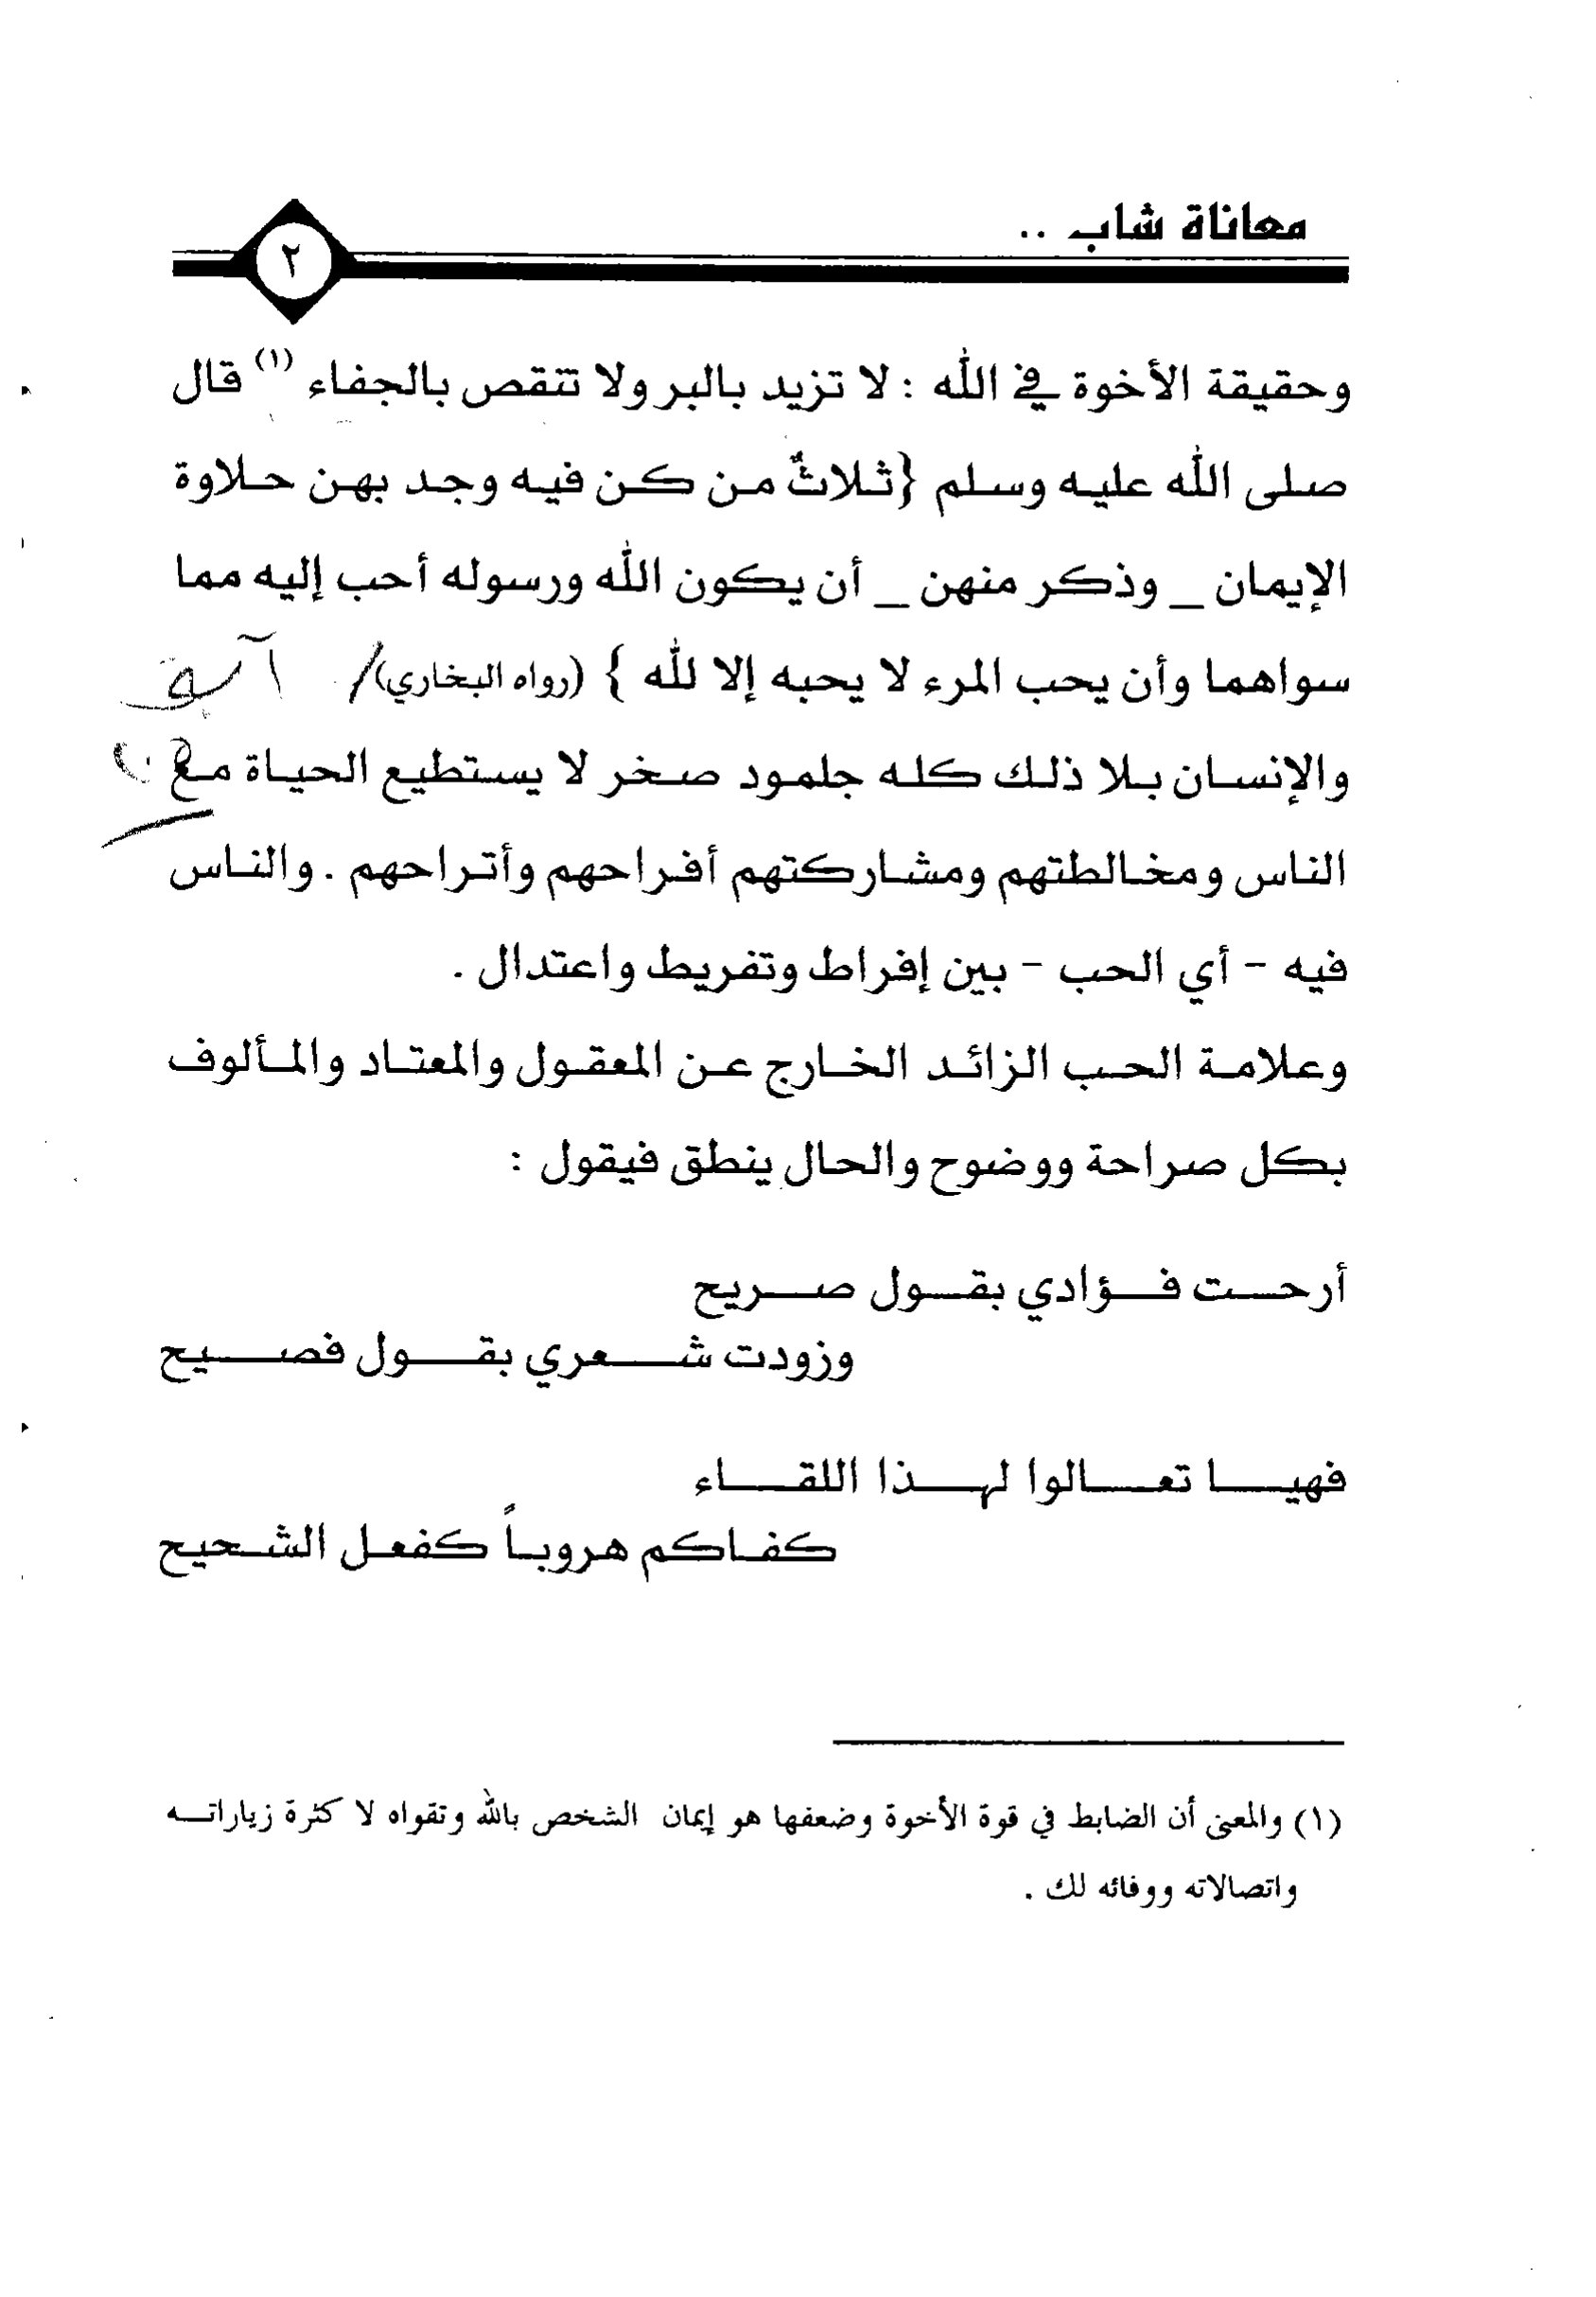 معاناة شاب ..
٢
وحقيقة الأخوة في الله : لا تزيد بالبر ولا تنقص بالجفاء (١) قال
صلى الله عليه وسلم {ثلاثٌ من كن فيه وجد بهن حلاوة
الإيمان _ وذكر منهن _ أن يكون الله ورسوله أحب إليه مما
سواهما وأن يحب المرء لا يحبه إلا لله } (رواه البخاري)/
والإنسان بلا ذلك كله جلمود صخر لا يستطيع الحياة مع
الناس ومخالطتهم ومشاركتهم أفراحهم وأتراحهم . والناس
فيه - أي الحب - بين إفراط وتفريط واعتدال .
وعلامة الحب الزائد الخارج عن المعقول والمعتاد والمألوف
بكل صراحة ووضوح والحال ينطق فيقول :
أرحت فؤادي بقول صريح
وزودت شعري بقول فصيح
فهيا تعالوا لهذا اللقاء
كفاكم هروباً كفعل الشحيح
(١) والمعنى أن الضابط في قوة الأخوة وضعفها هو إيمان الشخص بالله وتقواه لا كثرة زياراته
واتصالاته ووفائه لك .